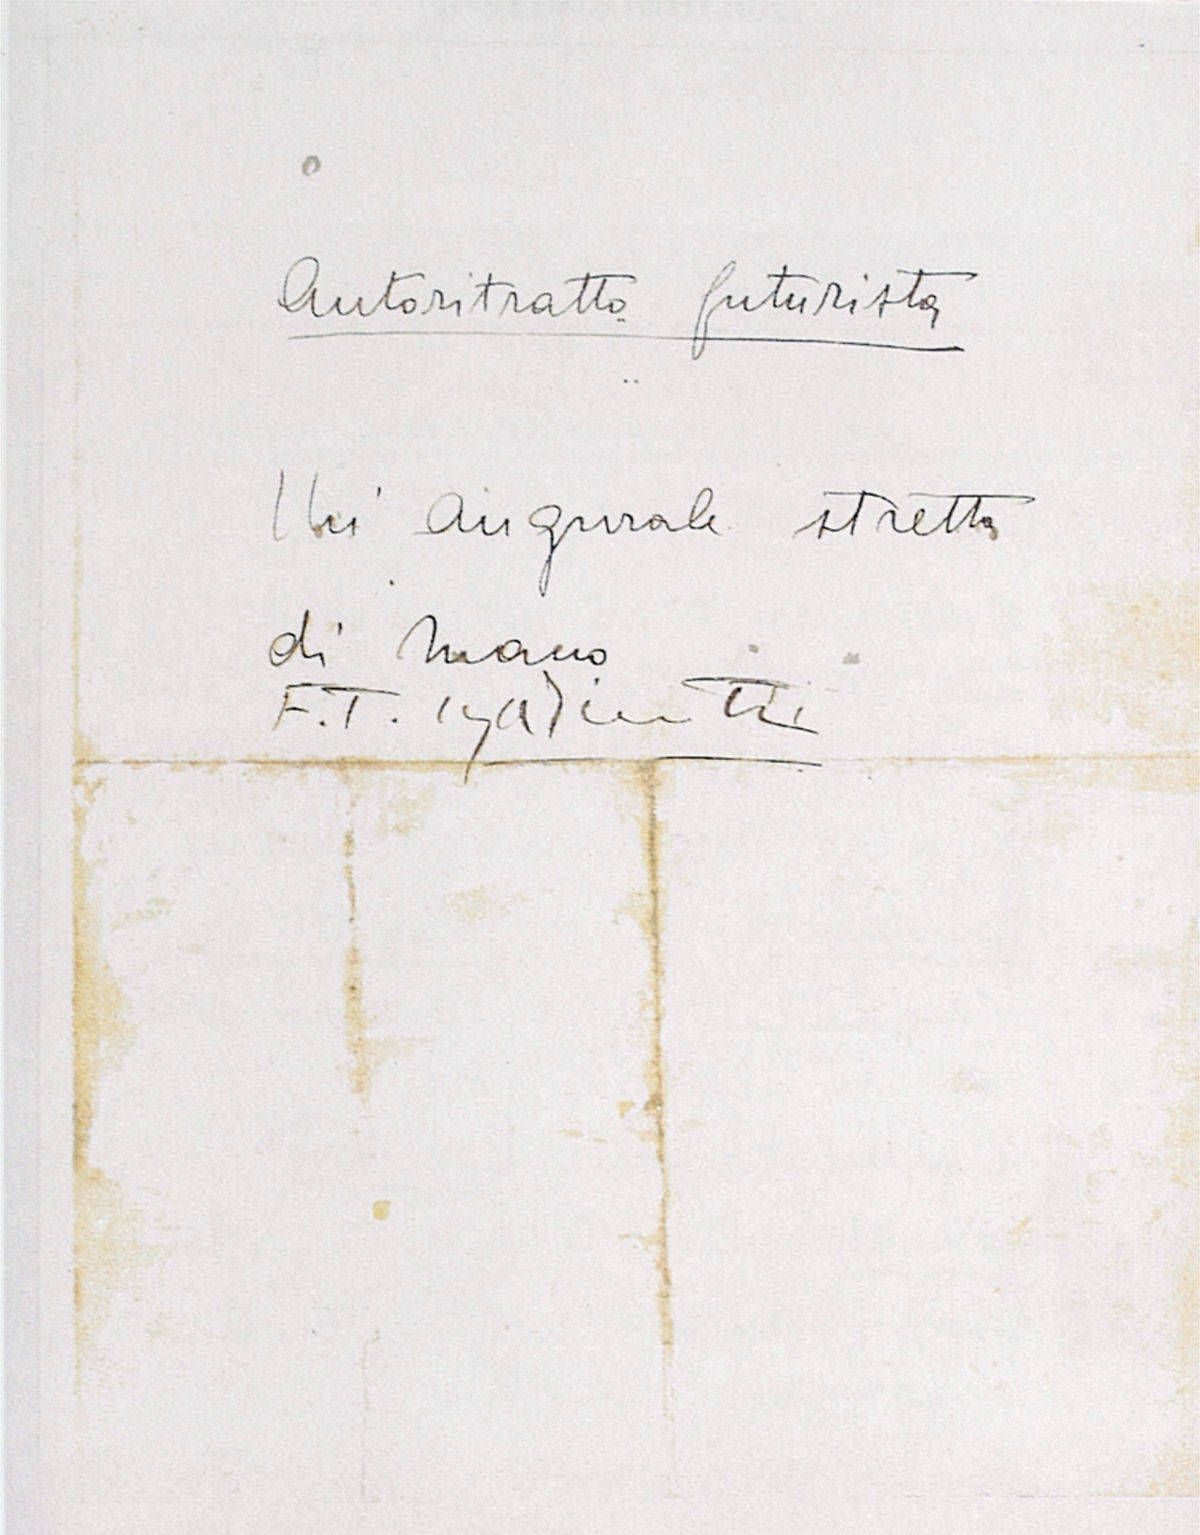 Autoritratto futurista
Un'augurale stretta
di mano
F.T. Marinetti